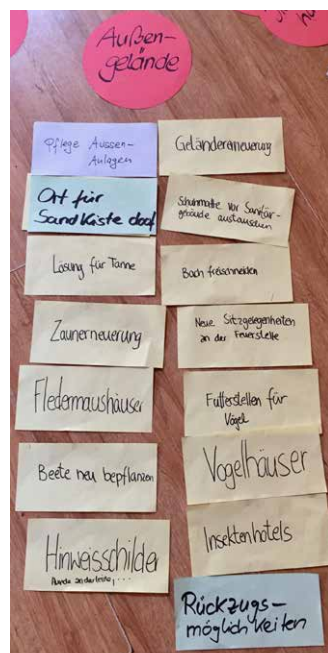 Außen-
gelände
Pflege Aussen-
Anlagen
Ort für
Sandkiste doof
Lösung für Tanne
Zaunerneuerung
Fledermaushäuser
Beete neu bepflanzen
Hinweisschilder
Hunde an der Leine, ...
Geländererneuerung
Schuhmatte vor Sanitär-
gebäude austauschen
Bach freischneiden
Neue Sitzgelegenheiten
an der Feuerstelle
Futterstellen für
Vögel
Vogelhäuser
Insektenhotels
Rückzugs-
möglichkeiten